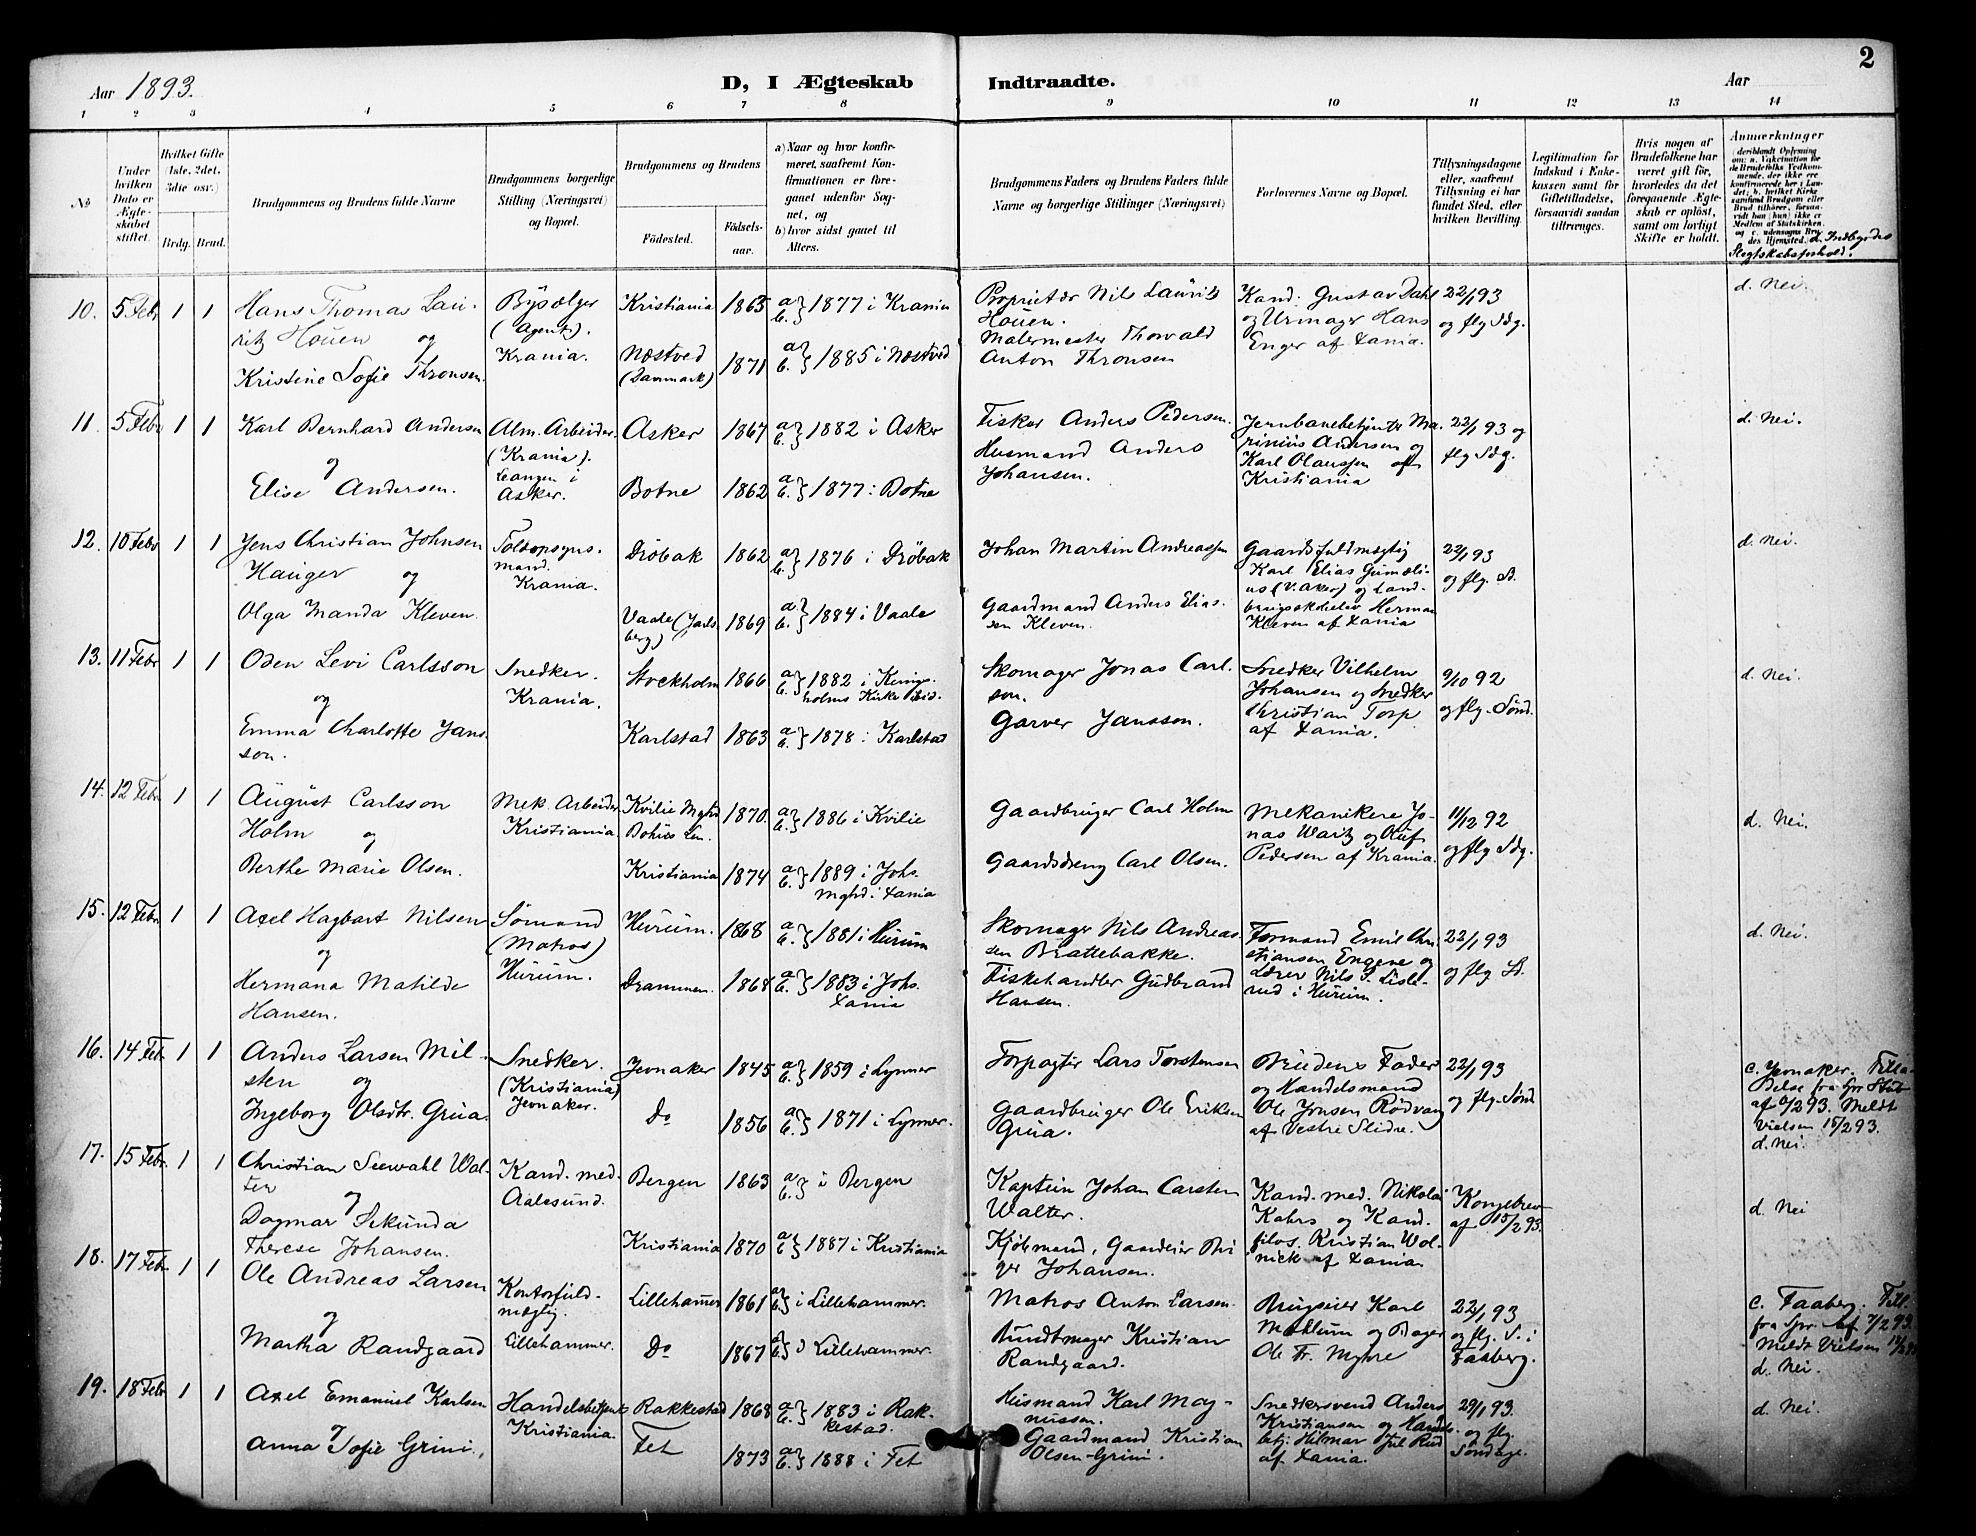 2
Aar 1893.
D, I Ægteskab Indtraadte.
Aar
1 2 3 4 5 6 7 8 9 10 11 12 13 14
No
Under hvilken Dato er Ægteskabet stiftet.
Hvilket Gifte (1ste, 2det, 3die osv.)
Brdg. Brud.
Brudgommens og Brudens fulde Navne
Brudgommens borgerlige Stilling (Næringsvei) og Bopæl.
Brudgommens og Brudens
Födested.
Födselsaar.
a) Naar og hvor konfirmeret, saafremt Konfirmationen er foregaaet udenfor Sognet, og
b) hvor sidst gaaet til Alters.
Brudgommens Faders og Brudens Faders fulde Navne og borgerlige Stillinger (Næringsvei)
Forlovernes Navne og Bopæl.
Tillysningsdagene eller, saafremt Tillysning ei har fundet Sted, efter hvilken Bevilling.
Legitimation for Indskud i Enkekassen samt for Giftetilladelse, forsaavidt saadan tiltrænges.
Hvis nogen af Brudefolkene har været gift för, hvorledes da det foregaaende Ægteskab er oplöst, samt om lovligt Skifte er holdt.
Anmerkninger (deriblandt Oplysning om: a. Vakcination for de Brudefolks Vedkommende, der ikke ere konfirmerede her i Landet; b. hvilket Kirkesamfund Brudgom eller Brud tilhörer, forsaavidt han (hun) ikke er Medlem af Statskirken og c. udensogns Brudes Hjemsted. d. Indbyrdes Slegtskabsforhold.
10. 5 Febr 1 1
Hans Thomas Lauritz Houen og
Kristine Sofie Thronsen.
Bysælger (Agent). Krania.
Kristiania 1865 a. b. } 1877 i Krania
Næstved (Danmark) 1871 a. b. } 1885 i Næstved
Proprietær Nils Lauritz Houen.
Malermester Thorvald Anton Thronsen
Kand. Gustav Dahl og Urmager Hans Enger af Xania.
22/1 93 og flg Sdg.
d. Nei.
11. 5 Febr 1 1
Karl Bernhard Andersen og
Elise Andersen.
Alm. Arbeider (Krania). Leangen i Asker.
Asker 1867 a. b. } 1882 i Asker
Botne 1862 a. b. } 1877 i Botne
Fisker Anders Pedersen.
Husmand Anders Johansen.
Jernbanebetjente Marinius Andersen og Karl Olaussen af Kristiania
22/1 93 og flg Sdg.
d. Nei.
12. 10 Febr 1 1
Jens Christian Johnsen Hauger og
Olga Manda Kleven.
Toldopsynsmand. Krania.
Dröbak 1862 a. b. } 1876 i Dröbak
Vaale (Jarlsberg) 1869 a. b. } 1884 i Vaale
Johan Martin Andreassen
Gaardmand Anders Eliassen Kleven.
Gaardsfuldmægtig Karl Elias Gumælius (V. Aker) og Landbrugskelev Herman Kleven af Xania
22/1 93 og flg. S.
d. Nei.
13. 11 Febr 1 1
Oden Levi Carlsson og
Emma Charlotte Jansson.
Snedker. Krania.
Stockholm 1866 a. b. } 1882 i Kungsholms Kirke
Karlstad 1863 a. b. } 1878 i Karlstad
Skomager Jonas Carlson.
Garver Jansson.
Snedker Vilhelm Johansen og Snedker Christian Torp af Xania.
9/10 92 og flg. Sönd.
d. Nei.
14. 12 Febr 1 1
August Carlsson Holm og
Berthe Marie Olsen.
Mek. Arbeider Kristiania.
Kvilie Mghd Bohus Len. 1870. a. b. } 1886 i Kvilie
Kristiania 1874 a. b. } 1889 i Johs. Mghd. i Xania
Gaardbruger Carl Holm
Gaardsdreng Carl Olsen.
Mekanikere Jonas Wartz og Oluf Pedersen af Krania.
11/12 92 og flg Sdg.
d. Nei.
15. 12 Febr 1 1
Axel Hagbart Nilsen og
Hermana Matilde Hansen.
Sömand (Matros) Hurum.
Hurum. 1868 a. b. } 1881 i Hurum
Drammen. 1868 a. b. } 1883 i Johs. Xania
Skomager Nils Andreassen Brattebakke.
Fiskehandler Gudbrand Hansen.
Formand Emil Christiansen Engene og Lærer Nils S. Lislerud i Hurum.
22/1 93 og flg S.
d. Nei.
16. 14 Feb. 1 1
Anders Larsen Milsten og
Ingeborg Olsdtr. Grua.
Snedker. (Kristiania) Jevnaker.
Jevnaker 1845 a. b. } 1859 i Lynner
Do 1856 a. b. } 1871 i Lynner.
Forpagter Lars Torstensen
Gaardbruger Ole Eriksen Grua.
Brudens Fader og Handelsmand Ole Jonsen Rødvang af Vestre Slidre.
22/1 93 og flg. Sönd
c. Jevnaker. Tilladelse fra Spr Stub af 6/2 93. Meldt Vielsen 15/2 93.
d. Nei.
17. 15 Febr. 1 1
Christian Seewahl Walter og
Dagmar Sekunda Therese Johansen.
Kand. med. Aalesund.
Bergen 1863 a. b. } i Bergen
Kristiania 1870 a. b. } 1887 i Kristiania
Kaptein Johan Carsten Walter.
Kjöbmand, Gaardeier Birger Johansen.
Kand. med. Nikolai Kahrs og Kand. filos. Kristian Wolnick af Xania
Kongebrev af 15/2 93.
d. Nei
18. 17 Febr. 1 1
Ole Andreas Larsen og
Martha Randgaard
Kontorfuldmægtig. Lillehammer.
Lillehammer 1861 a. b. } i Lillehammer.
Do 1867 a. b. } i Lillehammer.
Matros Anton Larsen.
Bundtmager Kristian Randgaard.
Brugseier Karl Mæhlum og Bager Ole Fr. Myhre
22/1 93 og flg. S. i Faaberg.
c. Faaberg. Till. fra Spr. af 7/2 93. Meldt Vielsen
d. Nei.
19. 18 Febr 1 1
Axel Emanuel Karlsen og
Anna Sofie Grini.
Handelsbetjent Kristiania.
Rakkestad 1868 a. b. } 1883 i Rakkestad.
Fet 1873 a. b. } 1888 i Fet
Husmand Karl Magnussen.
Gaardmand Kristian Olsen Grini.
Snedkersvend Anders Kristiansen og Handelsbetj. Hilmar Jul Rud af Xania.
29/1 93. og flg. Söndage.
d. Nei.